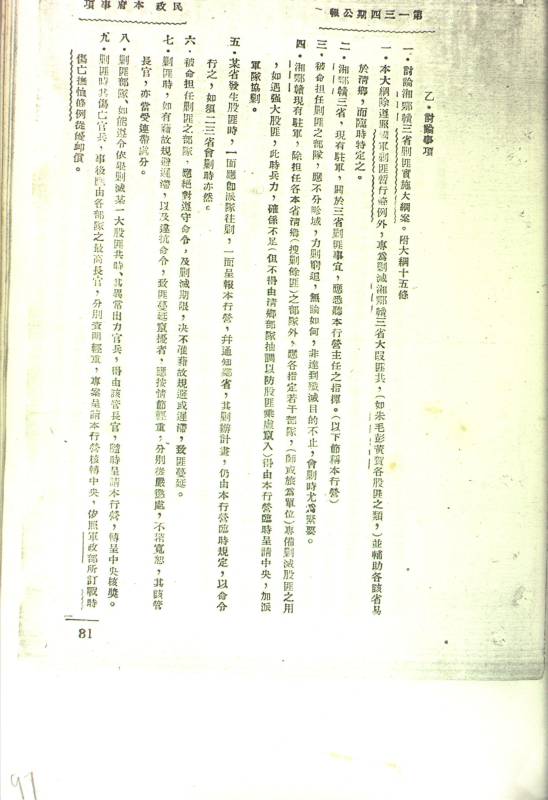 第一三四期公報
民政　本府事項
乙・討論事項
一・討論湘鄂贛三省剿匪實施大綱案。附大綱十五條
一・本大綱除遵照國軍剿匪暫行條例外，專爲剿滅湘鄂贛三省大股匪共，（如朱毛彭黃賀各股匪之類，）並輔助各該省易
於清鄉，而臨時特定之。
二・湘鄂贛三省，現有駐軍，關於三省剿匪事宜，應悉聽本行營主任之指揮。（以下簡稱本行營）
三・被命担任剿匪之部隊，應不分畛域，力剿窮追，無論如何，非達到殲滅目的不止，會剿時尤爲緊要。
四・湘鄂贛現有駐軍，除担任各本省清鄉（搜剿餘匪）之部隊外，應各指定若干部隊，（師或旅爲單位）專備剿滅股匪之用
，如遇强大股匪，此時兵力，確係不足（但不得由清鄉部隊抽調以防股匪乘虛竄入）得由本行營臨時呈請中央，加派
軍隊協剿。
五・某省發生股匪時，一面應卽派隊往剿，一面呈報本行營，幷通知鄰省，其剿辦計畫，仍由本行營臨時規定，以命令
行之，如須二三省會剿時亦然。
六・被命担任剿匪之部隊，應絕對遵守命令，及剿滅期限，决不准藉故規避或遲滯，致匪蔓延。
七・剿匪時，如有藉故規避遲滯，以及違抗命令，致匪蔓延竄擾者，應按情節輕重，分別從嚴懲處，不稍寬恕，其該管
長官，亦當受連帶處分。
八・剿匪部隊、如能遵令依限剿滅某一大股匪共時、其異常出力官兵，得由該管長官，隨時呈請本行營，轉呈中央核獎。
九・剿匪時其傷亡官兵，事後應由各部隊之最高長官，分別查明輕重，專案呈請本行營核轉中央，依照軍政部所訂戰時
傷亡撫恤條例從優卹償。
81
97